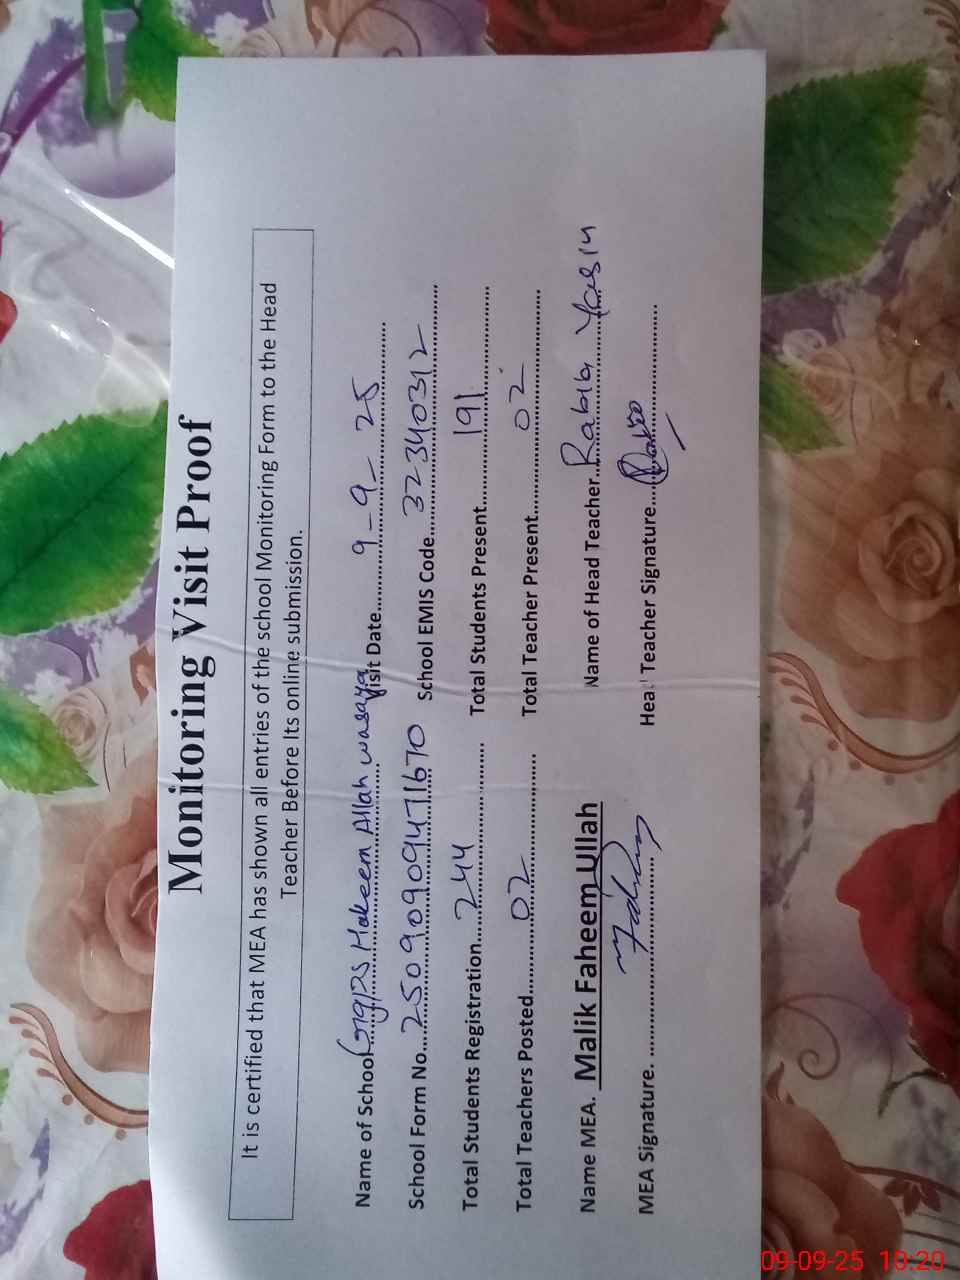 Monitoring Visit Proof
It is certified that MEA has shown all entries of the school Monitoring Form to the Head
Teacher Before Its online submission.
Name of School GGPS Hakeem Allah wasaya Visit Date 9-9-25
School Form No. 250909094716 70 School EMIS Code. 32340312
Total Students Registration 244 Total Students Present 191
Total Teachers Posted 02 Total Teacher Present 02
Name MEA. Malik Faheem Ullah Name of Head Teacher. Rabib Yasin
MEA Signature. Head Teacher Signature.
09-09-25 10:20